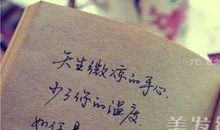 天生微凉的手心
少了你的温度
如何是
美发